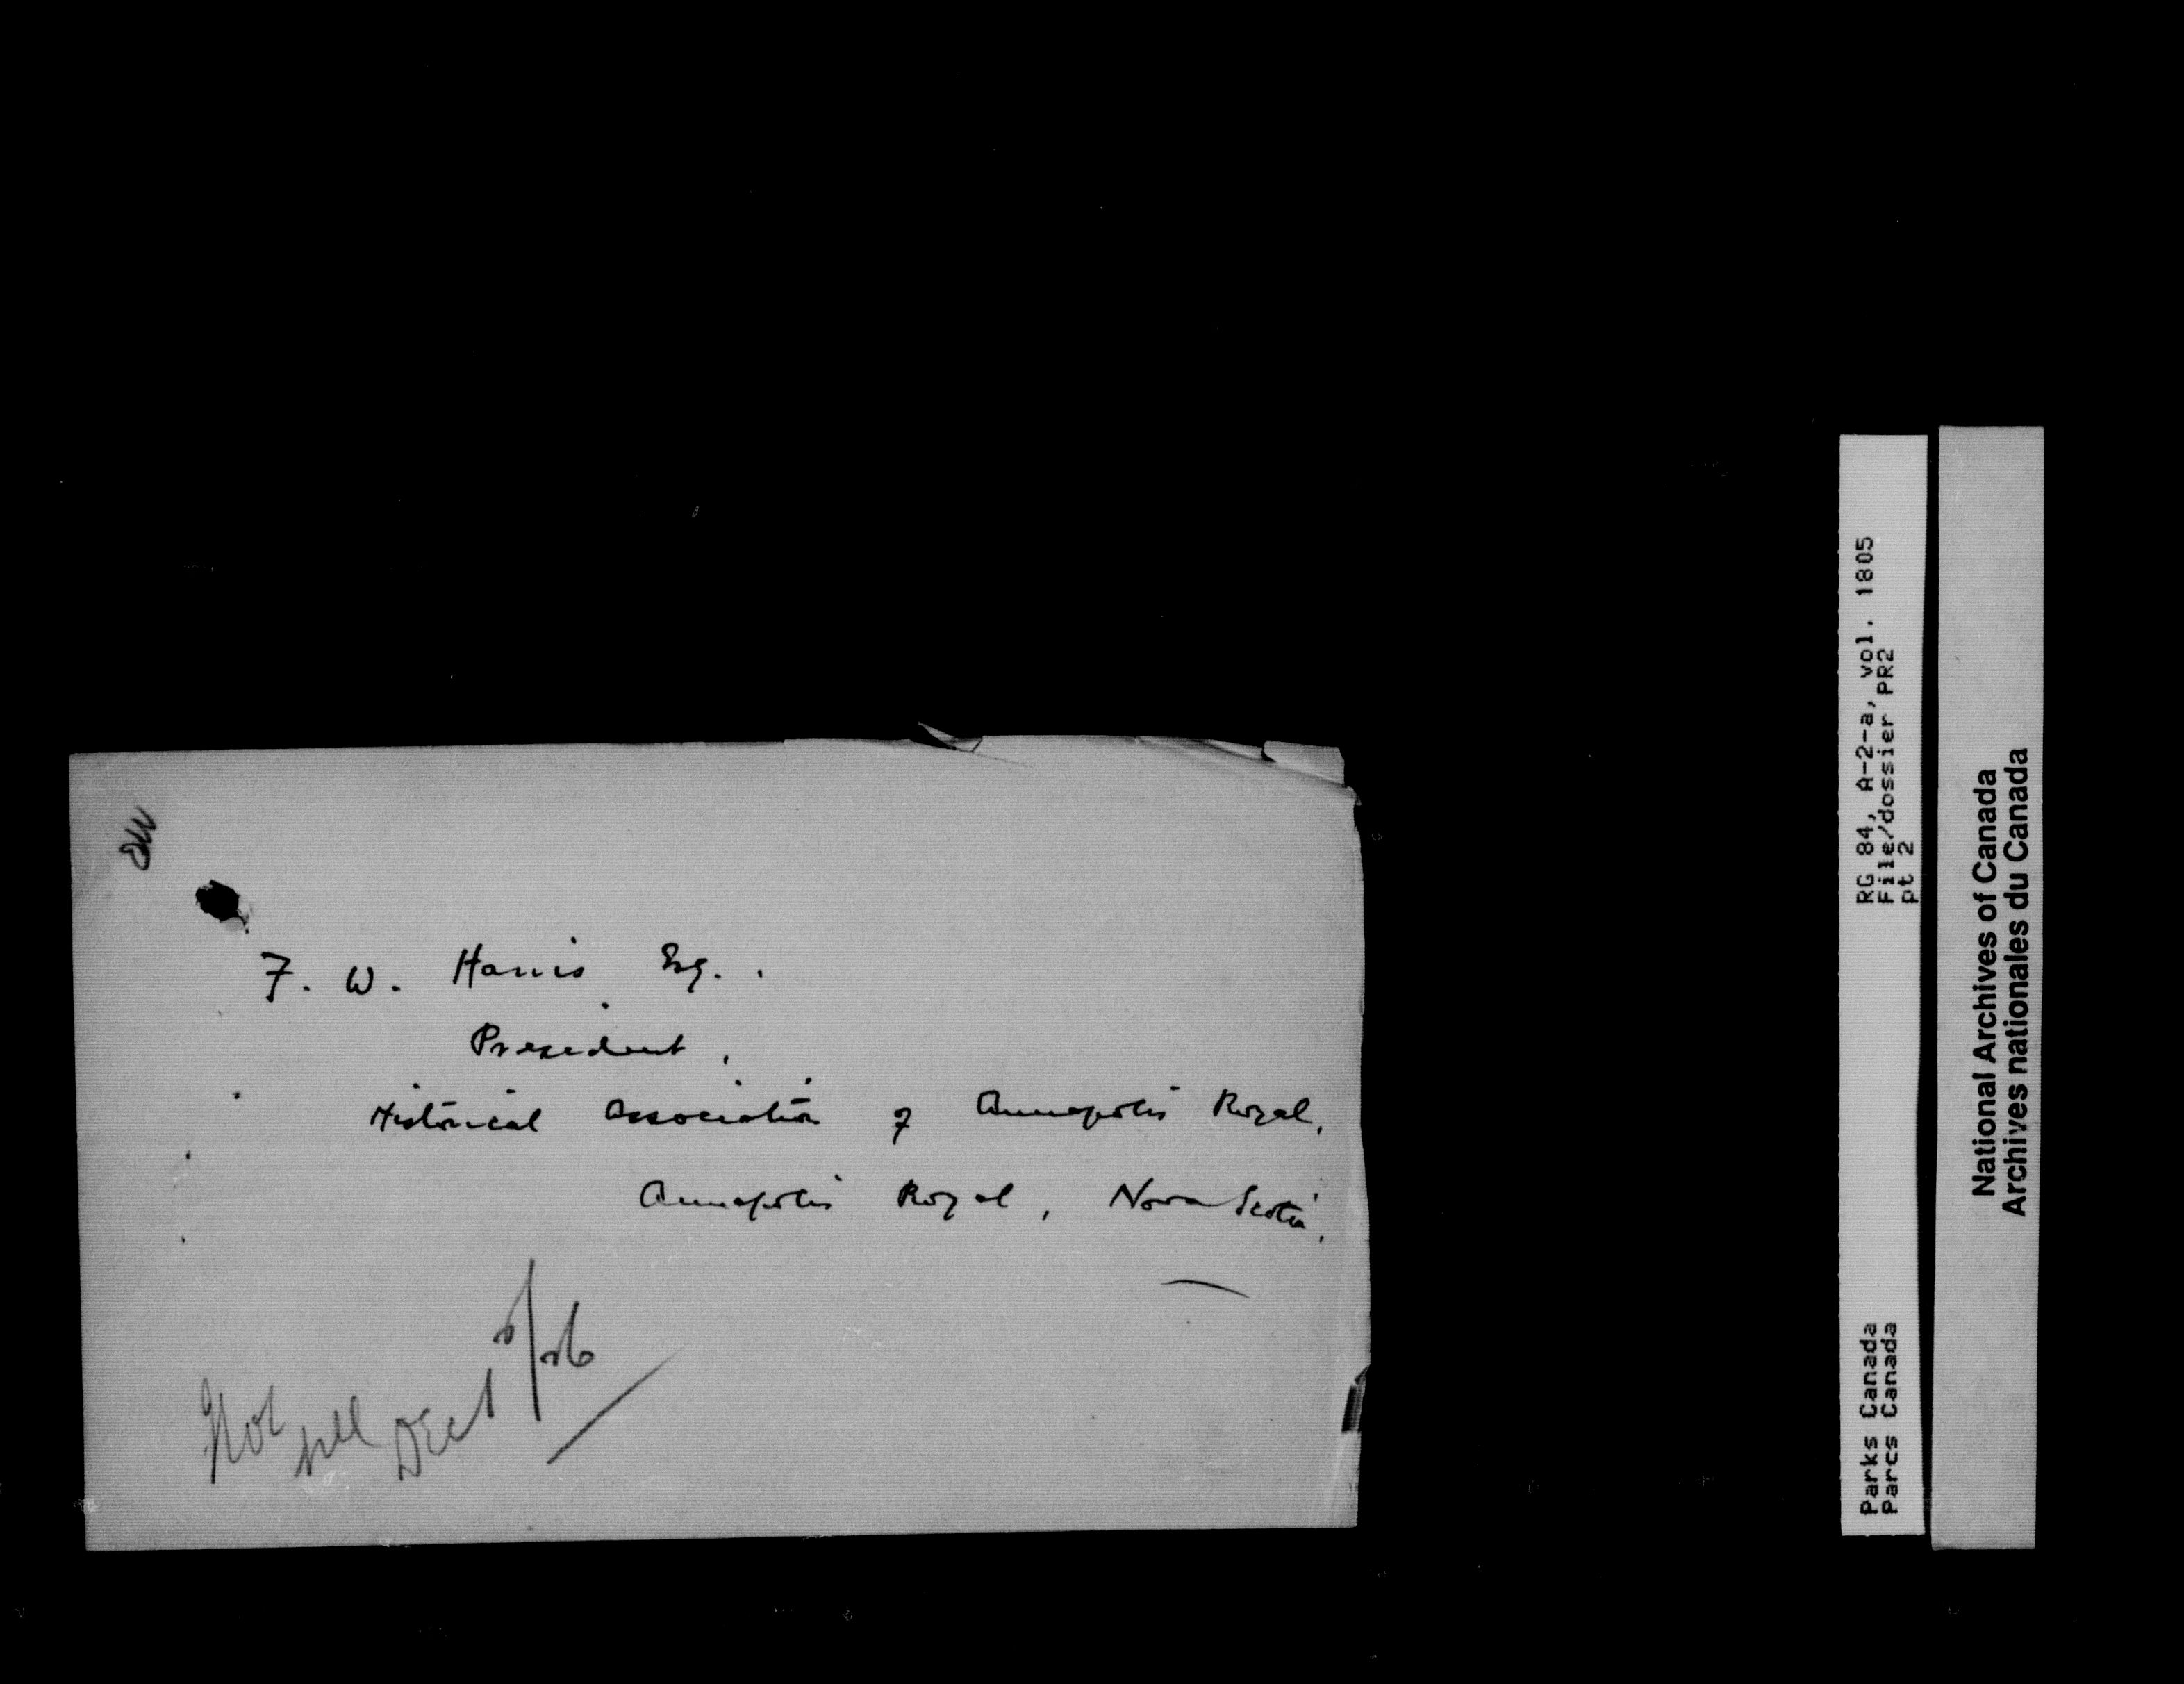 F. W. Harris Esq..
President,
Historical Association of Annapolis Royal,
Annapolis Royal, Nova Scotia.
RG 84, A-2-a, vol. 1805
File/dossier PR2
pt 2
Parks Canada
Parcs Canada
National Archives of Canada
Archives nationales du Canada